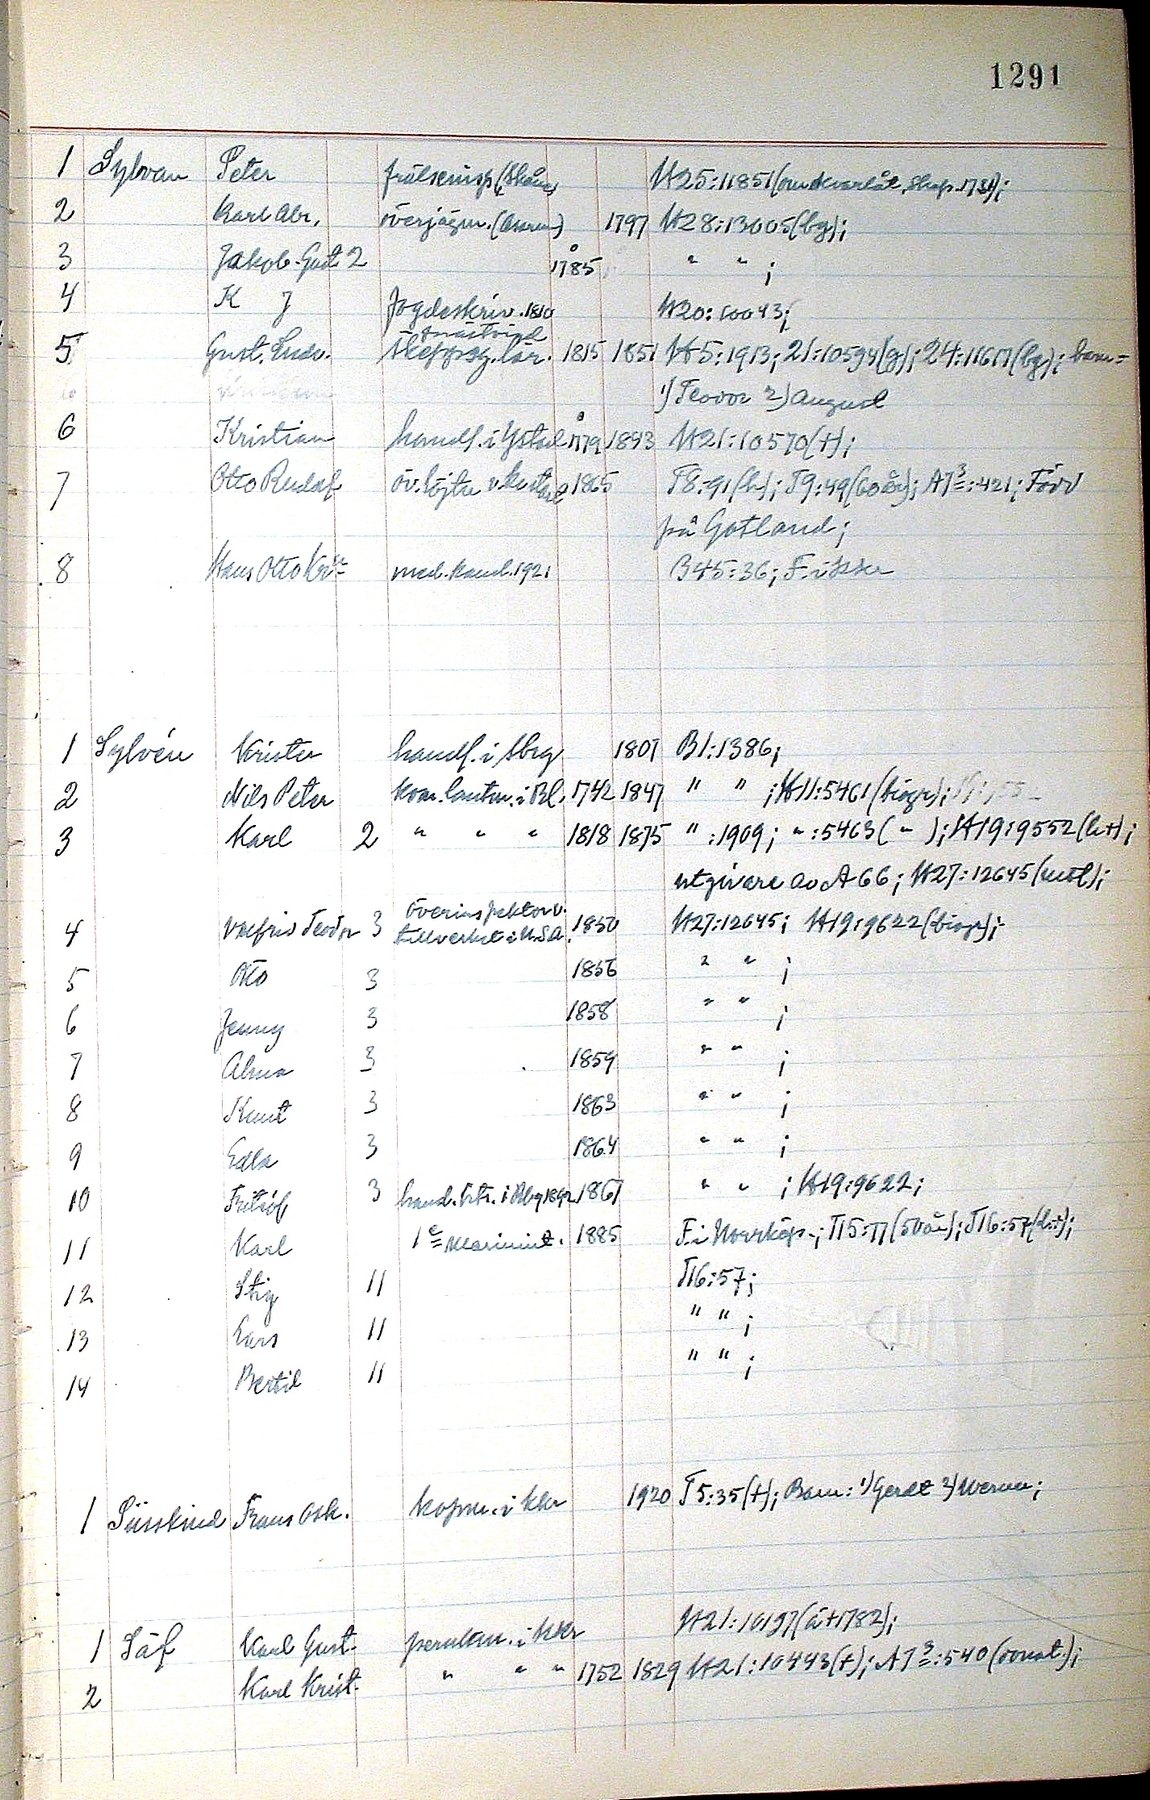 1291
1 Sylvan Peter frälseinsp. (Skåne) H25:11851 (om kvarlåt.skap. 1731);
2 Karl Abr. överjägm. 1797 H28:13005 (bg);
3 Jakob Gust. 2 å 1785 " " ;
4 K J fogdeskriv. 1810 H20:10043;
5 Gust. Ludv. skeppsg. lär. 1815 1851 H5:1913; 21:10594(g); 24:11617(bg); barn =
1) Teodor 2) August
6 Kristian handl. i Ystad å 1779 1843 H21:10570(t);
7 Otto Rudolf öv.löjtn v. kustart 1865 T8:91(h); T9:49(60 år); A7³:421; Född
på Gotland;
8 Hans Otto Kr:n med. kand. 1921 B45:36; F. i Kkr
1 Sylvén Krister handl. i Kbg 1807 B1:1386;
2 Nils Peter kom. lantm. i Bl. 1742 1847 " " ; H11:5461 (biogr);
3 Karl 2 " " " 1818 1875 " :1909; " :5463 ( " ); H19:9552 (h+);
utgivare av A66; H27:12645 (medl);
4 Valfrid Teodor 3 överinspektor v. tullverket i U.S.A. 1850 H27:12645; H19:9622 (biogr);
5 Otto 3 1856 " " ;
6 Jenny 3 1858 " " ;
7 Alma 3 1859 " " ;
8 Knut 3 1863 " " ;
9 Edla 3 1864 " " ;
10 Fritiof 3 hand. btr. i Kbg 1892 1867 " " ; H19:9622;
11 Karl 1e Marinint. 1885 F. i Norrköp.; T15:77 (50 år); T16:57 (h+);
12 Stig 11 T16:57;
13 Lars 11 " " ;
14 Bertil 11 " " ;
1 Süsskind Frans Osk. köpm. i Kkr 1920 T5:35(t); Barn: 1) Gerdt 2) Werner;
1 Säf Karl Gust. perukm. i Kkr H21:10197 (å+1782);
2 Karl Krist. " " " 1752 1829 H21:10443(t); A7³:540 (donat.);